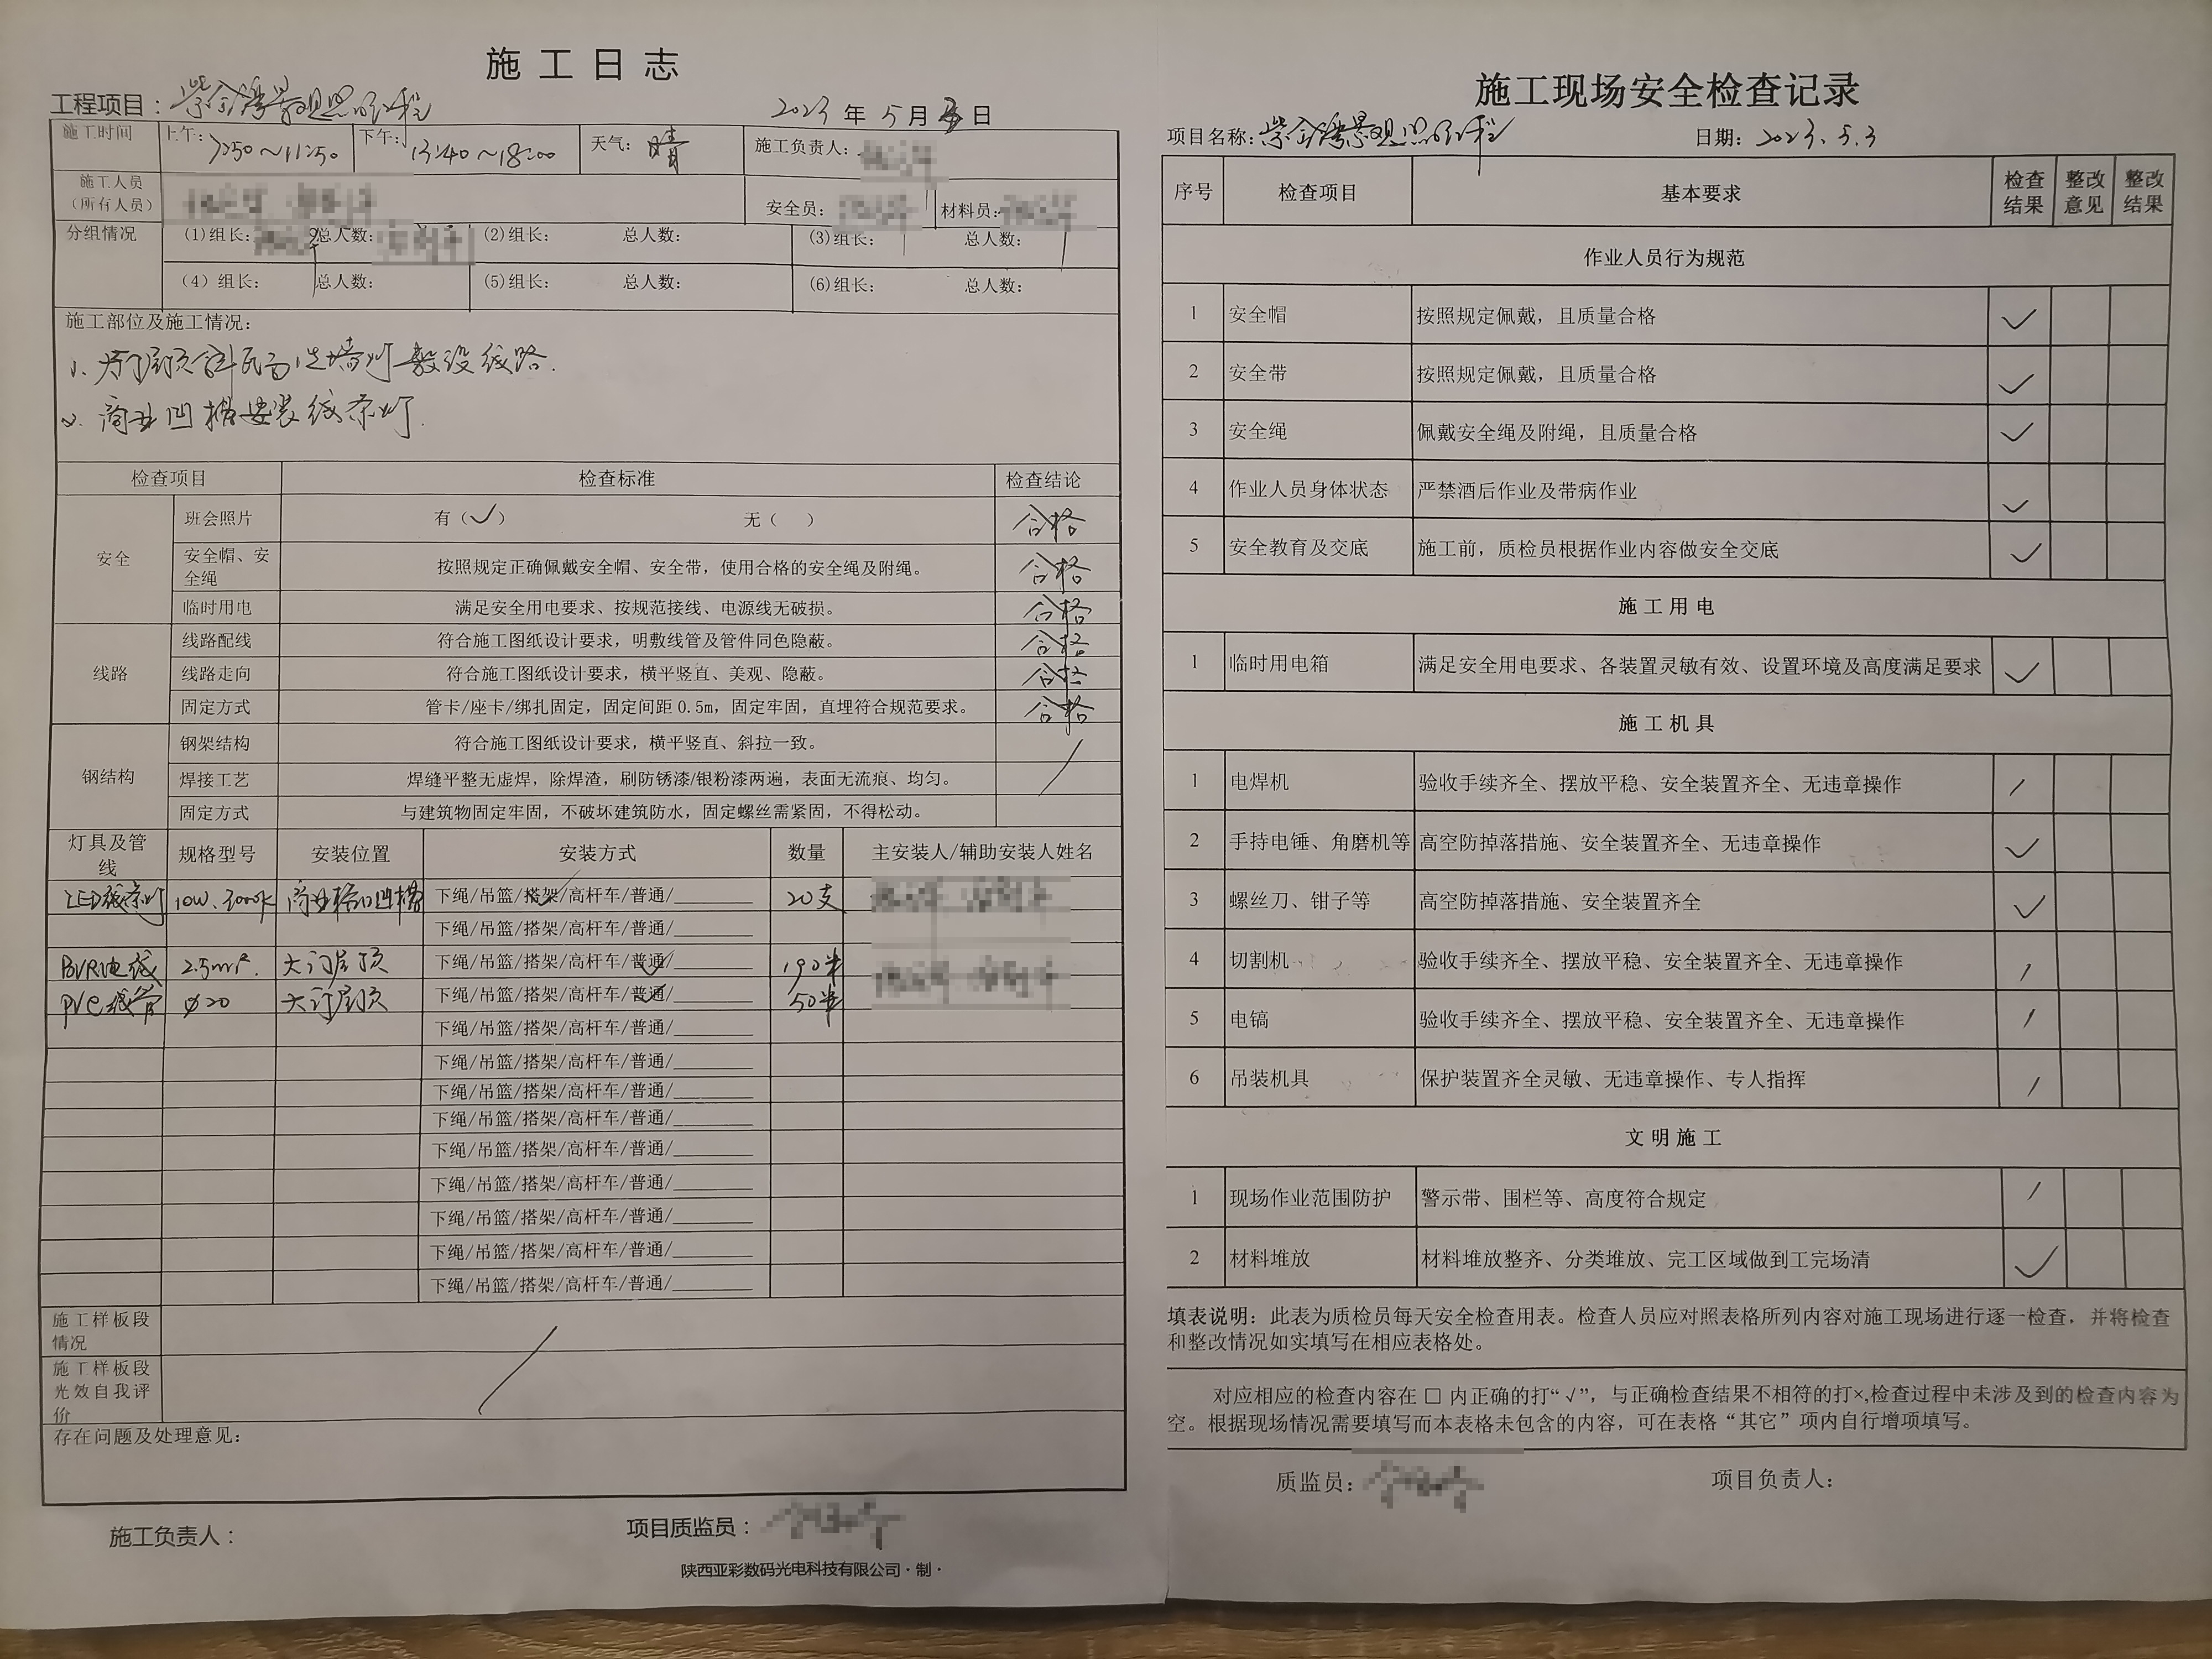 施工日志
工程项目：紫金湾景观照明工程 2023年5月3日
施工时间 上午：7:50～11:50 下午：13:40～18:00 天气：晴 施工负责人：
施工人员（所有人员） 安全员： 材料员：
分组情况 (1)组长： 总人数： (2)组长： 总人数： (3)组长： 总人数：
(4)组长： 总人数： (5)组长： 总人数： (6)组长： 总人数：
施工部位及施工情况：
1. 大门屋顶斜瓦面洗墙灯敷设线路.
2. 商业凹槽安装线条灯.
检查项目 检查标准 检查结论
安全 班会照片 有（✓） 无（ ） 合格
安全帽、安全绳 按照规定正确佩戴安全帽、安全带，使用合格的安全绳及附绳。 合格
临时用电 满足安全用电要求、按规范接线、电源线无破损。 合格
线路 线路配线 符合施工图纸设计要求，明敷线管及管件同色隐蔽。 合格
线路走向 符合施工图纸设计要求，横平竖直、美观、隐蔽。 合格
固定方式 管卡/座卡/绑扎固定，固定间距 0.5m，固定牢固，直埋符合规范要求。 合格
钢结构 钢架结构 符合施工图纸设计要求，横平竖直、斜拉一致。
焊接工艺 焊缝平整无虚焊，除焊渣，刷防锈漆/银粉漆两遍，表面无流痕、均匀。
固定方式 与建筑物固定牢固，不破坏建筑防水，固定螺丝需紧固，不得松动。
灯具及管线 规格型号 安装位置 安装方式 数量 主安装人/辅助安装人姓名
LED线条灯 10W、3000K 商业檐口凹槽 下绳/吊篮/搭架/高杆车/普通/ 20支
下绳/吊篮/搭架/高杆车/普通/
BVR电线 2.5m². 大门屋顶 下绳/吊篮/搭架/高杆车/普通/ 190米
PVC线管 φ20 大门屋顶 下绳/吊篮/搭架/高杆车/普通/ 50米
下绳/吊篮/搭架/高杆车/普通/
下绳/吊篮/搭架/高杆车/普通/
下绳/吊篮/搭架/高杆车/普通/
下绳/吊篮/搭架/高杆车/普通/
下绳/吊篮/搭架/高杆车/普通/
下绳/吊篮/搭架/高杆车/普通/
下绳/吊篮/搭架/高杆车/普通/
下绳/吊篮/搭架/高杆车/普通/
下绳/吊篮/搭架/高杆车/普通/
施工样板段情况
施工样板段光效自我评价
存在问题及处理意见：
施工负责人： 项目质监员：
陕西亚彩数码光电科技有限公司·制·
施工现场安全检查记录
项目名称：紫金湾景观照明工程 日期：2023.5.3
序号 检查项目 基本要求 检查结果 整改意见 整改结果
作业人员行为规范
1 安全帽 按照规定佩戴，且质量合格 ✓
2 安全带 按照规定佩戴，且质量合格 ✓
3 安全绳 佩戴安全绳及附绳，且质量合格 ✓
4 作业人员身体状态 严禁酒后作业及带病作业 ✓
5 安全教育及交底 施工前，质检员根据作业内容做安全交底 ✓
施工用电
1 临时用电箱 满足安全用电要求、各装置灵敏有效、设置环境及高度满足要求 ✓
施工机具
1 电焊机 验收手续齐全、摆放平稳、安全装置齐全、无违章操作 /
2 手持电锤、角磨机等 高空防掉落措施、安全装置齐全、无违章操作 ✓
3 螺丝刀、钳子等 高空防掉落措施、安全装置齐全 ✓
4 切割机 验收手续齐全、摆放平稳、安全装置齐全、无违章操作 /
5 电镐 验收手续齐全、摆放平稳、安全装置齐全、无违章操作 /
6 吊装机具 保护装置齐全灵敏、无违章操作、专人指挥 /
文明施工
1 现场作业范围防护 警示带、围栏等、高度符合规定 /
2 材料堆放 材料堆放整齐、分类堆放、完工区域做到工完场清 ✓
填表说明：此表为质检员每天安全检查用表。检查人员应对照表格所列内容对施工现场进行逐一检查，并将检查
和整改情况如实填写在相应表格处。
对应相应的检查内容在 □ 内正确的打“√”，与正确检查结果不相符的打×,检查过程中未涉及到的检查内容为
空。根据现场情况需要填写而本表格未包含的内容，可在表格“其它”项内自行增项填写。
质监员： 项目负责人：